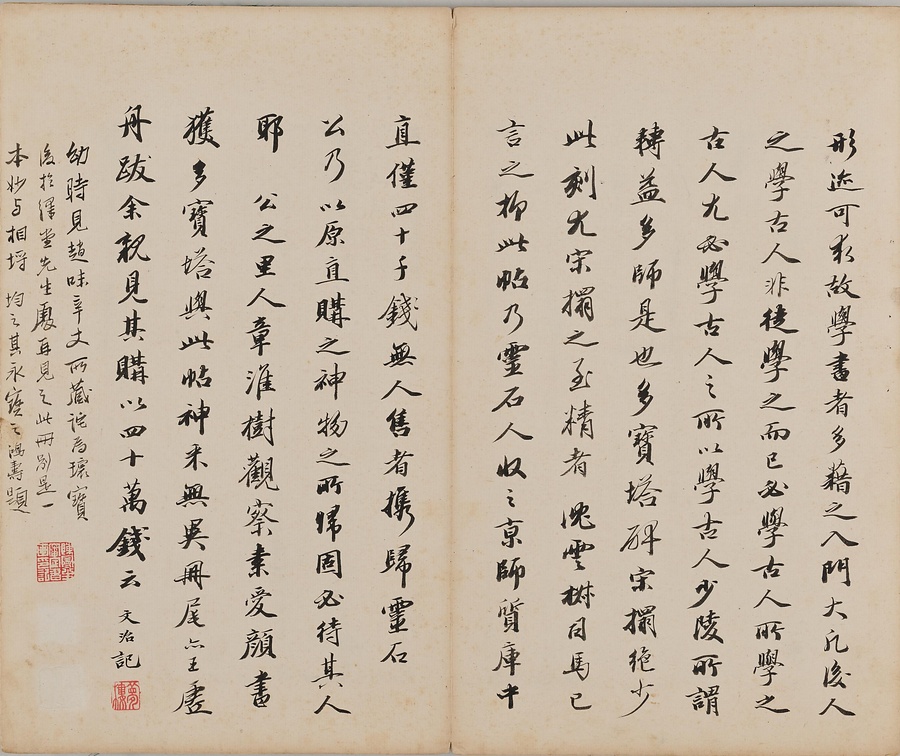 形迹可求故學書者多藉之入門大凡後人
之學古人非徒學之而已必學古人所學之
古人尤必學古人之所以學古人少陵所謂
轉益多師是也多寶塔碑宋搨絕少
此刻尤宋搨之至精者 沈雲樹司馬已
言之抑此帖乃靈石人收之京師質庫中
直僅四十千錢無人售者攜歸靈石
公乃以原直購之神物之所歸固必待其人
耶 公之里人章淮樹觀察素愛顏書
獲多寶塔與此帖神采無異冊尾亦王虛
舟跋余親見其購以四十萬錢云 文治記
幼時見趙味辛丈所藏詫為瓌寶
後於澤堂先生處再見之此冊別是一
本妙與相埒 均之其永寶之鴻壽題